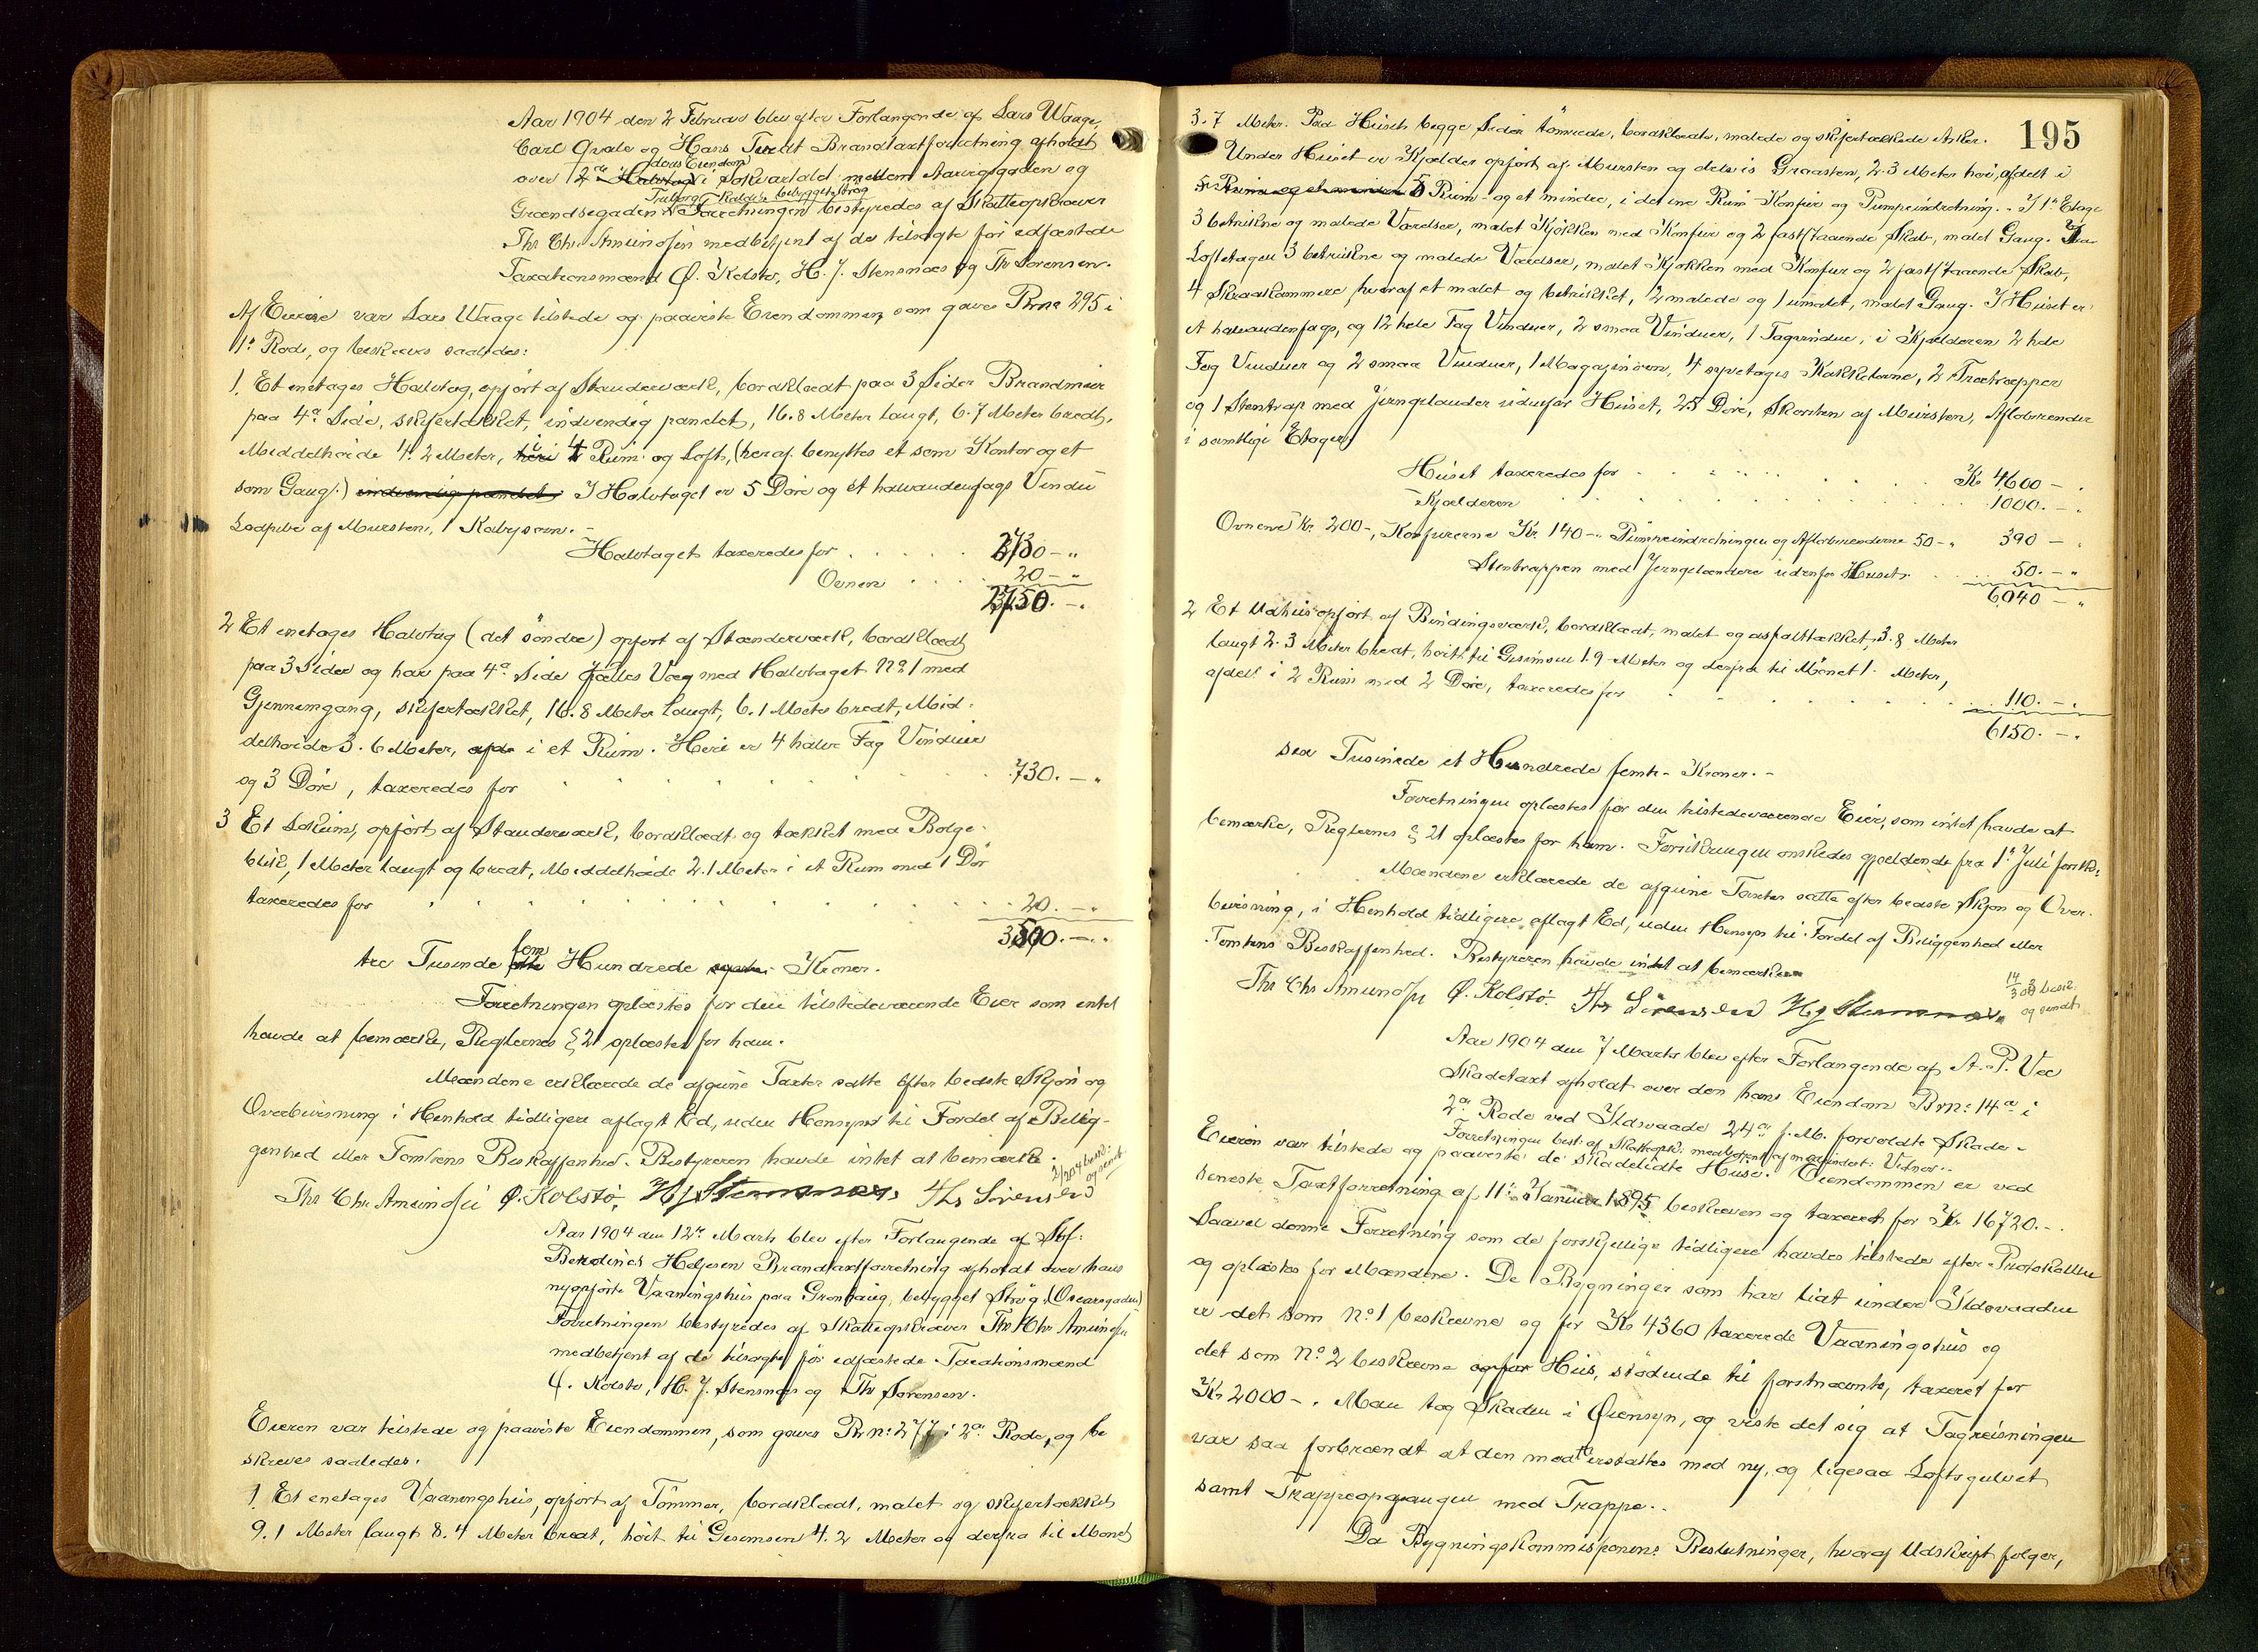 Aar 1904 den 2 Februar blev efter Forlangende af Lars Waage,
Carl Qvale og Hans Tvedt Brandtaxtforretning afholdt
deres Eiendom
over 2de Halvtag i Søkvartalet mellem Aavigsgaden og
bebygget Strøg
Grændsegaden Forretningen bestyredes af Skatteopkræver
Thr Chr Amundsen medbetjent af de tilsagte før edfæstede
Taxationsmænd Ø. Kolstø, H. J. Stensnæs og Thr Sørensen.
Af Eierne var Lars Waage tilstede og paaviste Eiendommen, som gaves Brno 295 i
1ste Rode, og beskreves saaledes:
1. Et enetages Halvtag, opført af Stænderværk, bordklædt paa 3 Sider Brandmur
paa 4de Side, skifertækket, indvendig panelet, 16.8 Meter langt, 6.7 Meter bredt,
Middelhøide 4.2 Meter, i 4 Rum og Loft, (heraf benyttes et som Kontor og et
som Gang.) indvendig panelet. I Halvtaget er 5 Døre og et halvandenfags Vindu
Lodpibe af Mursten, 1 Kabysovn. -
Halvtaget taxeredes for . . . . . 2730 - "
Ovnen . . . . 20 - "
2750. - "
2 Et enetages Halvtag (det søndre) opført af Stænderværk, bordklædt
paa 3 Sider og har paa 4de Side fælles Væg med Halvtaget No 1 med
Gjennemgang, skifertækket, 16.8 Meter langt, 6.1 Meter bredt, Mid-
delhøide 3.6 Meter, i et Rum. Heri er 4 halve Fag Vinduer
og 3 Døre, taxeredes for . . . . . 730. - "
3 Et Lokum, opført af Stænderværk, bordklædt og tækket med Bølge-
blik, 1 Meter langt og bredt, Middelhøide 2.1 Meter i et Rum med 1 Dør
taxeredes for . . . . . 20. - "
3500. - "
tre Tusinde fem Hundrede Kroner.
Forretningen oplæstes for den tilstedeværende Eier som intet
havde at bemærke, Reglernes § 21 oplæstes for ham.
Mændene erklærede de afgivne Taxter satte efter bedste Skjøn og
Overbevisning i Henhold tidligere aflagt Ed, uden Hensyn til Fordel af Belig-
genhed eller Tomtens Beskaffenhed. Bestyreren havde intet at bemærke.
Thr Chr Amundsen Ø. Kolstø. H J Stensnæs Thr Sørensen
Aar 1904 den 12te Marts blev efter Forlangende af
Berdines Helgesen Brandtaxtforretning afholdt over hans
nyopførte Vaaningshus paa Grønhaug, bebygget Strøg. (Oscarsgaden)
Forretningen bestyredes af Skatteopkræver Thr Chr Amundsen
medbetjent af de tilsagte før edfæstede Taxationsmænd
Ø. Kolstø, H. J. Stensnæs og Thr Sørensen.
Eieren var tilstede og paaviste Eiendommen, som gaves Brno 277 i 2den Rode, og be
skreves saaledes.
1. Et enetages Vaaningshus, opført af Tømmer, bordklædt, malet og skifertækket
9.1 Meter langt 8.4 Meter bredt, høit til Gesemsen 4.2 Meter og derfra til Mønet
195
3.7 Meter. Paa Husets begge Sider tømrede, bordklædte, malede og skifertækkede Arker.
Under Huset er Kjælder opført af Mursten og delvis Graasten, 2.3 Meter høi, afdelt i
5 Rum og et mindre, i det ene Rum Konfur og Pumpeindretning. - I 1ste Etage
3 betrukne og malede Værelser, malet Kjøkken med Konfur og 2 fast/taaende Skab, malet Gang. Paa
Loftetagen 3 betrukne og malede Værelser, malet Kjøkken med Konfur og 2 fast/taaende Skab,
4 Skraakammere hvoraf et malet og betrukket, 2 malede og 1 umalet, malet Gang. I Huset er
et halvandenfags, og 12 hele Fag Vinduer, 2 smaa Vinduer, 1 Tagvindue, i Kjælderen 2 hele
Fag Vinduer og 2 smaa Vinduer, 1 Magazinovn, 4 syvetages Kakkelovne, 2 Trætrapper
og 1 Stentrap med Jerngelænder udenfor Huset, 25 Døre, Skorsten af Mursten, Afløbsrender
i samtlige Etager.
Huset taxeredes for . . . . . Kr 4600 - "
Kjælderen . . . . . 1000. - "
Ovnene Kr. 200 -, Konfurerne Kr. 140 - " Pumpeindretningen og Afløbsrenderne 50 - " 390 - "
Stentrappen med Jerngelændere udenfor Huset . . . 50. - "
6040 - "
2 Et Udhus opført af Bindingsværk, bordklædt, malet og asfalttækket, 3.8 Meter
langt 2.3 Meter bredt, høit til Gesimsen 1.9 Meter og derfra til Mønet 1. Meter,
afdelt i 2 Rum med 2 Døre, taxeredes for . . . . . 110. - "
6150. - "
sex Tusinde et Hundrede femti - Kroner. -
Forretningen oplæstes for den tilstedeværende Eier, som intet havde at
bemærke, Reglernes § 21 oplæstes for ham. Forsikringen ønskedes gjældende fra 1ste Juli førstk:
Mændene erklærede de afgivne Taxter satte efter bedste Skjøn og Over-
bevisning, i Henhold tidligere aflagt Ed, uden Hensyn til Fordel af Beliggenhed eller
Tomtens Beskaffenhed. Bestyreren havde intet at bemærke
Thr Chr Amundsen Ø. Kolstø. Thr Sörensen H J Stensnæs.
Aar 1904 den 7 Marts blev efter Forlangende af A. P. Vee
Skadetaxt afholdt over den hans Eiendom Brno: 14a i
2den Rode ved Ildsvaade 24de f. M. forvoldte Skade. -
Forretningen best. af Skatteopkr. medbetjent af medundert: Vidner. -
Eieren var tilstede og paaviste de skadelidte Huse. Eiendommen er ved
seneste Taxtforretning af 11te Januar 1895 beskreven og taxeret for Kr. 16720. -.
Saavel denne Forretning som de forskjellige tidligere havdes tilstede efter Protokollen
og oplæstes for Mændene. De Bygninger som har lidt under Ildsvaaden
er det som No 1 beskrevne og for Kr 4360 taxerede Vaaningshus og
det som No 2 beskrevne Hus, stødende til førstnævnte, taxeret for
Kr 2000 -. Man tog Skaden i Øiensyn, og viste det sig at Tagreisningen
var saa forbrændt at den maatte erstattes med ny, og ligesaa Loftsgulvet
samt Trappeopgangen med Trappe. .
Da Bygningskommissionens Beslutninger, hvoraf Udskrift følger,